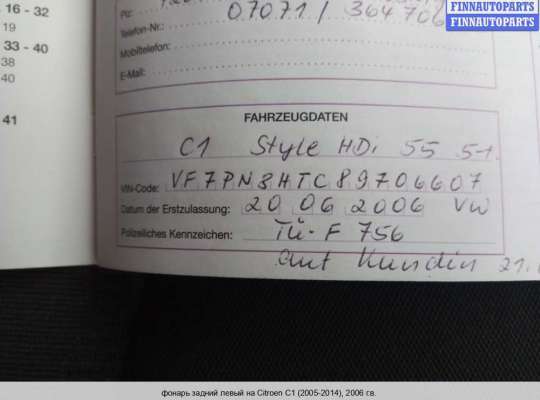 FINNAUTOPARTS
FINNAUTOPARTS
16 - 32
19
33 - 40
38
40
41
07071 / 364706
Telefon-Nr.:
Mobiltelefon:
E-Mail:
FAHRZEUGDATEN
C1 Style HDi 55 5-t.
VIN-Code: VF7PN8HTC89706607
Datum der Erstzulassung: 20 06 2006 VW
Polizeiliches Kennzeichen: TÜ-F 756
Kundin 21.
фонарь задний левый на Citroen C1 (2005-2014), 2006 г.в.